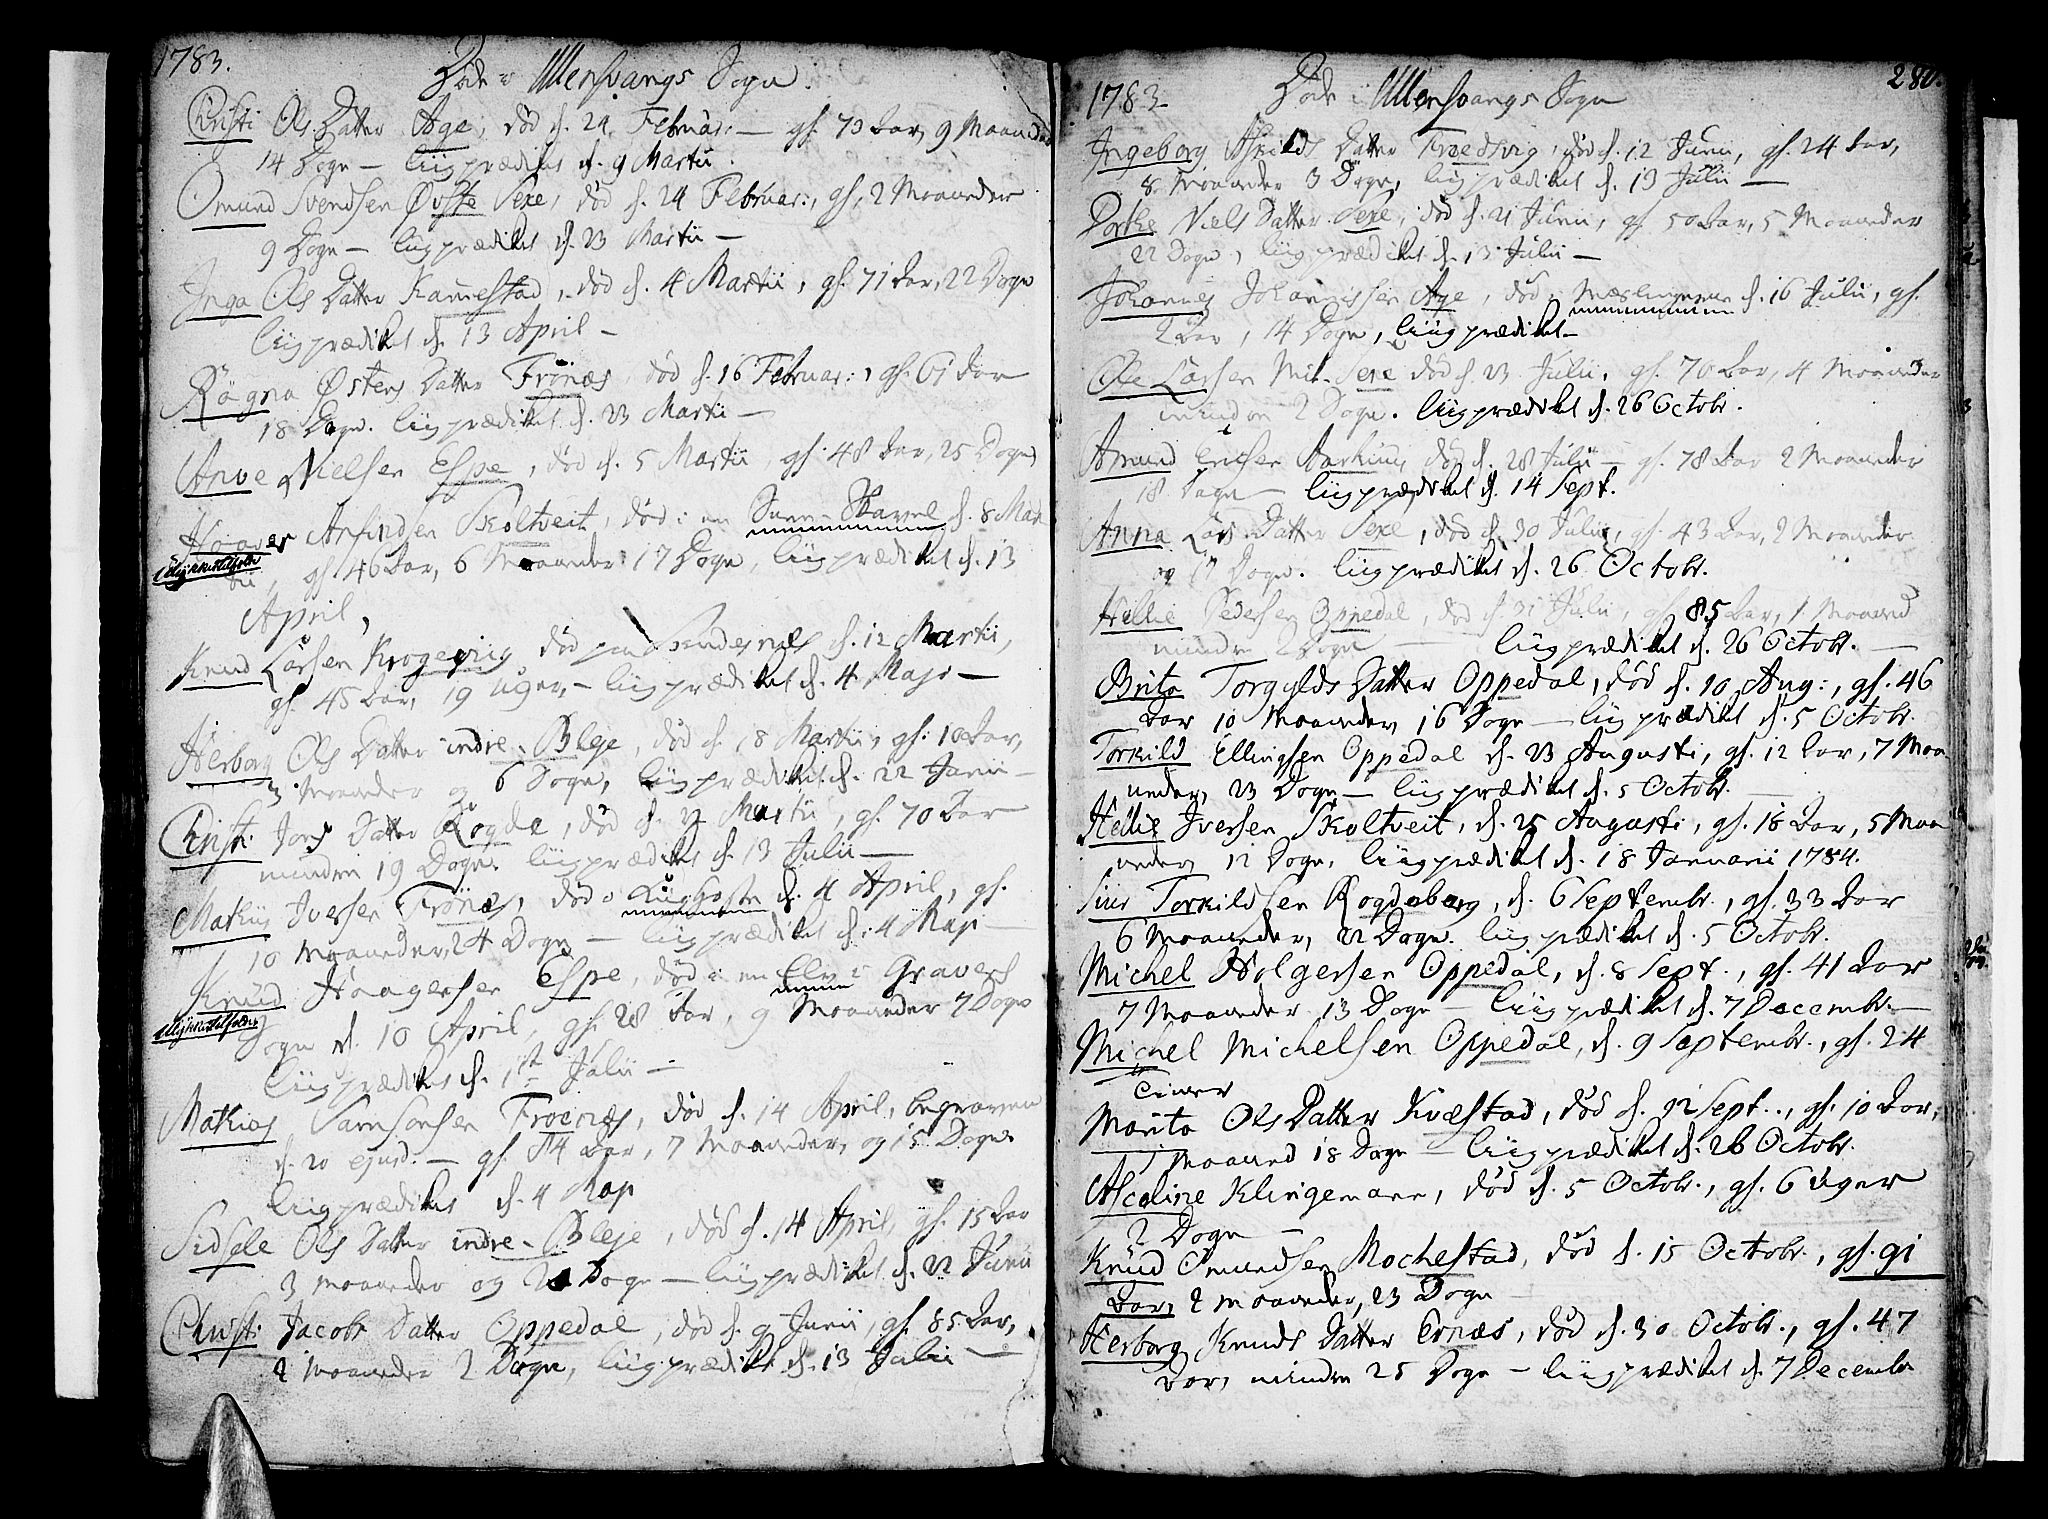 1783.
Døde i Ullensvangs Sogn.
Christi Ols Datter Age, død d. 24 Februar: — gl. 73 Aar, 9 Maaneder
14 Dogn — liigprædiket d. 9 Martii.
Omund Svendsen Øvste Sexe, død d. 24 Februar:, gl. 2 Maaneder
9 Dogn — liigprædiket d. 23 Martii —
Inga Ols Datter Kamestad, død d. 4 Martii, gl. 71 Aar, 22 Dogn
liigprædiket d. 13 April —
Ragna Østens Datter Frönæs, død d. 16 Februar:, gl. 61 Aar
18 Dogn. liigprædiket d. 23 Martii —
Arve Nielsen Espe, død d. 5 Martii, gl. 48 Aar, 25 Dogn
Haaver Amundsen Skoltveit, død i en Snee-Skavel d. 8 Mar
Ulykkestilfælde
tii, gl. 46 Aar, 6 Maaneder 17 Dogn, liigprædiket d. 13
April,
Knud Larsen Krogevig død paa d. 12 Martii,
gl. 45 Aar, 19 Uger, — liigprædiket d. 4 Maji —
Herborg Ols Datter indre-Bleje, død d. 18 Martii, gl. 10 Aar,
3 Maaneder og 6 Dogn, liigprædiket d. 22 Junii —
Christi Jons Datter Rogde, død d. 22 Martii, gl. 70 Aar
minden 19 Dogn. liigprædiket d. 13 Julii —
Mathis Iversen Frönæs, død d. 4 April, gl.
10 Maaneder, 24 Dogn — liigprædiket d. 4 Maji —
Knud Haagensen Espe, død i en Elv i Gravens
Ulykkestilfælde
Sogn d. 10 April, gl. 28 Aar, 9 Maaneder 7 Dogn
liigprædiket d. 1st Julii —
Mathias Samsonsen Froenæs, død d. 14 April, begraven
d. 20 ejusd. — gl. 14 Aar, 7 Maaneder, og 15 Dogn
liigprædiket d. 4 Maji
Sidsele Ols Datter indre-Bleje, død d. 14 April, gl. 15 Aar
3 Maaneder og Dogn — liigprædiket d. 22 Junii
Christi Jacobs Datter Oppedal, død d. 9 Junii, gl. 85 Aar,
2 Maaneder 2 Dogn, liigprædiket d. 13 Julii —
280.
1783
Døde i Ullensvangs Sogn
Ingeborg Askilds Datter Froedsvig, død d. 12 Junii, gl. 24 Aar,
8 Maaneder 3 Dogn, liigprædiket d. 13 Julii —
Dorthe Niels Datter Sexe, død d. 21 Junii, gl. 50 Aar, 5 Maaneder
22 Dogn, liigprædiket d. 13 Julii —
Johannes Johannessen Age, død i Mæslingerne d. 16 Julii, gl.
2 Aar, 14 Dogn, liigprædiket —
Ole Larsen Mit-Sexe død d. 23 Julii, gl. 70 Aar, 4 Maaneder
minden 2 Dogn. liigprædiket d. 26 Octobr.
Amund Ericsen Aarhuus, død d. 28 Julii — gl. 78 Aar 2 Maaneder
18 Dogn — liigprædiket d. 14 Sept.
Anna Lars Datter Sexe, død d. 30 Julii, gl. 43 Aar, 2 Maaneder
og 17 Dogn. liigprædiket d. 26 Octobr.
Hellie Pedersen Oppedal, død d. 31 Julii, gl. 85 Aar, 1 Maaned
minden 2 Dogn — liigprædiket d. 26 Octobr. —
Brita Torgylds Datter Oppedal, død d. 10 Aug:, gl. 46
Aar 10 Maaneder, 16 Dogn — liigprædiket d. 5 Octobr.
Torkild Ellingsen Oppedal d. 23 Augusti, gl. 12 Aar, 7 Maa
neder, 23 Dogn — liigprædiket d. 5 Octobr. —
Hellie Iversen Skoltveit, d. 25 Augusti, gl. 18 Aar, 5 Maa
neder, 12 Dogn, liigprædiket d. 18 Januarii 1784.
Siur Torkildsen Rogdeberg, d. 6 Septembr., gl. 33 Aar
6 Maaneder, 22 Dogn. liigprædiket d. 5 Octobr.
Michel Holgersen Oppedal, d. 8 Sept., gl. 41 Aar
7 Maaneder 13 Dogn — liigprædiket d. 7 Decembr. —
Michel Michelsen Oppedal, d. 9 Septembr., gl. 24
Timer
Marita Ols Datter Kvæstad, død d. 12 Sept., gl. 10 Aar,
1 Maaned 18 Dogn — liigprædiket d. 26 Octobr.
Ascoline Klingemann, død d. 5 Octobr., gl. 6 Uger
2 Dogn —
Knud Omundsen Mochestad, død d. 15 Octobr., gl. 91
Aar, 2 Maaneder, 23 Dogn —
Herborg Knuds Datter Ernæs, død d. 30 Octobr., gl. 47
Aar, minden 25 Dogn — liigprædiket d. 7 Decembr